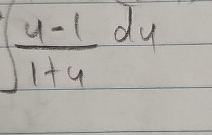 ∫ (u-1)/(1+u) du